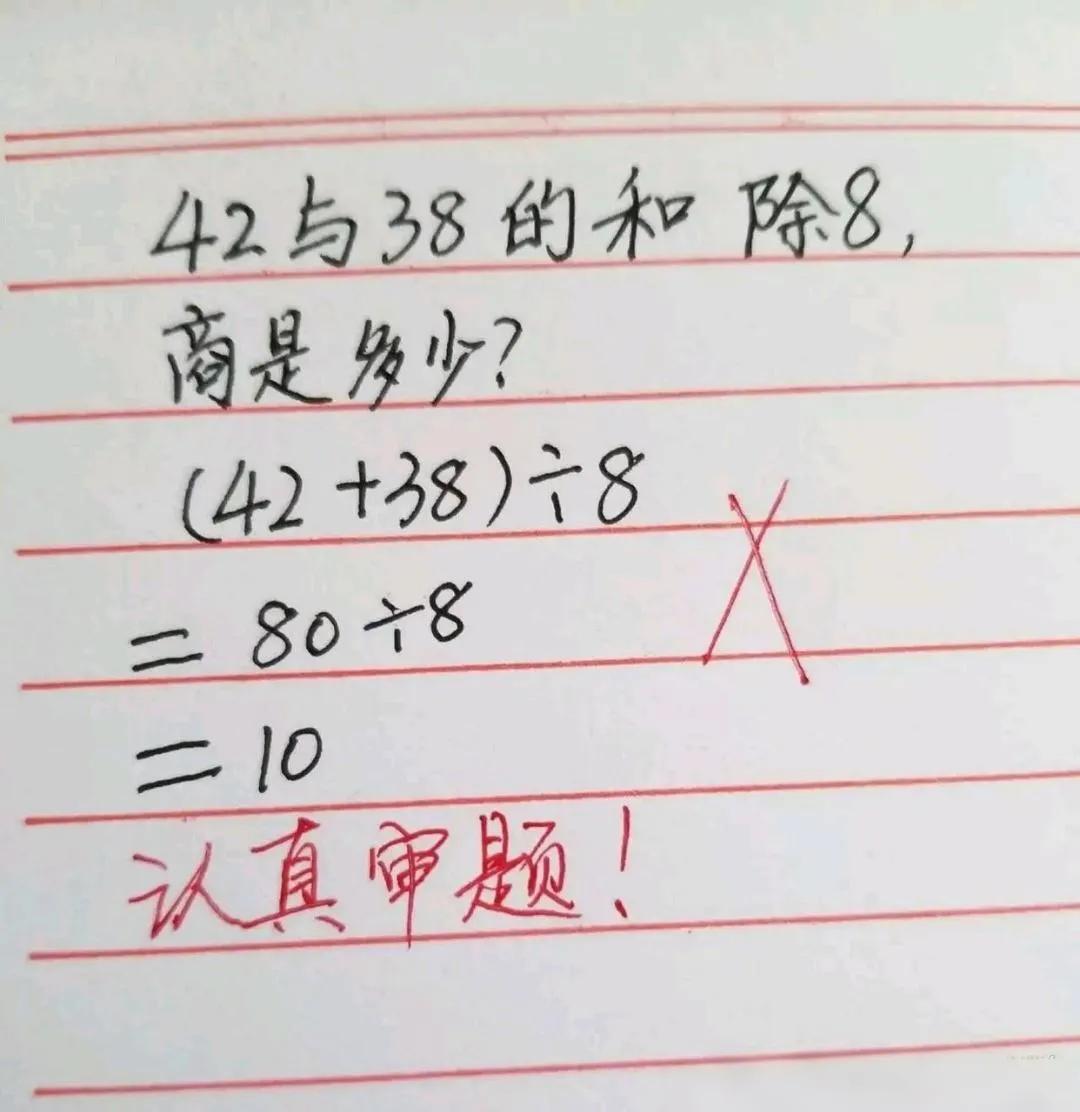 42与38的和 除8,
商是多少?
(42+38)÷8
= 80÷8
= 10
认真审题!